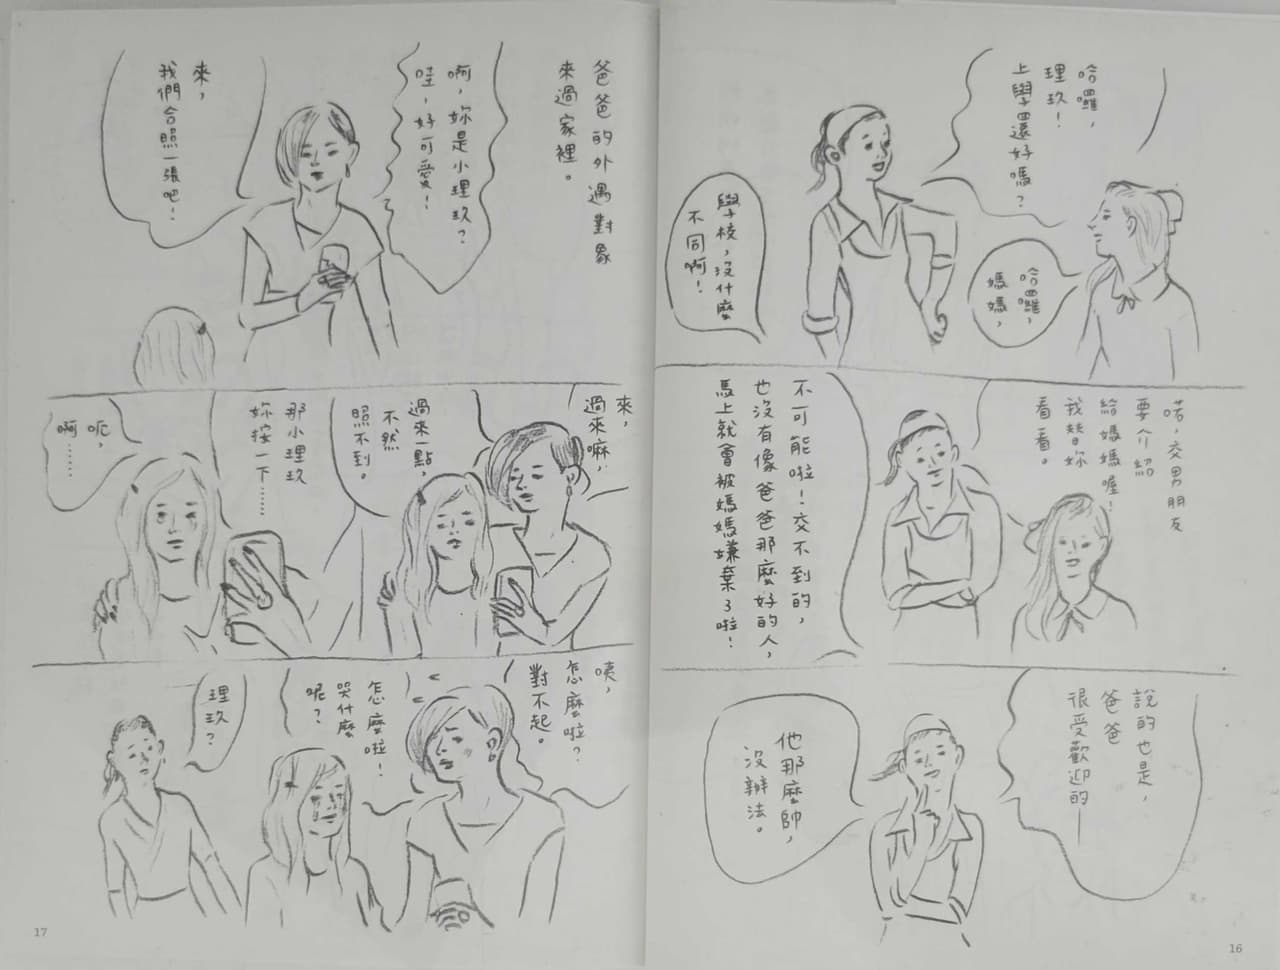 哈囉，
理玖！
上學還好嗎？
哈囉，
媽媽，
學校，沒什麼
不同啊！
喏，交男朋友
要介紹
給媽媽喔！
我替妳
看看。
不可能啦！交不到的，
也沒有像爸爸那麼好的人，
馬上就會被媽媽嫌棄了啦！
說的也是，
爸爸
很受歡迎的—
他那麼帥，
沒辦法。
16
爸爸的外遇對象
來過家裡。
啊，妳是小理玖？
哇，好可愛！
來，
我們合照一張吧！
來，
過來嘛，
過來一點，
不然
照不到。
那小理玖
妳按一下……
呃，
啊……
咦，
怎麼啦？
對不起。
怎麼啦！
哭什麼
呢？
理玖？
17